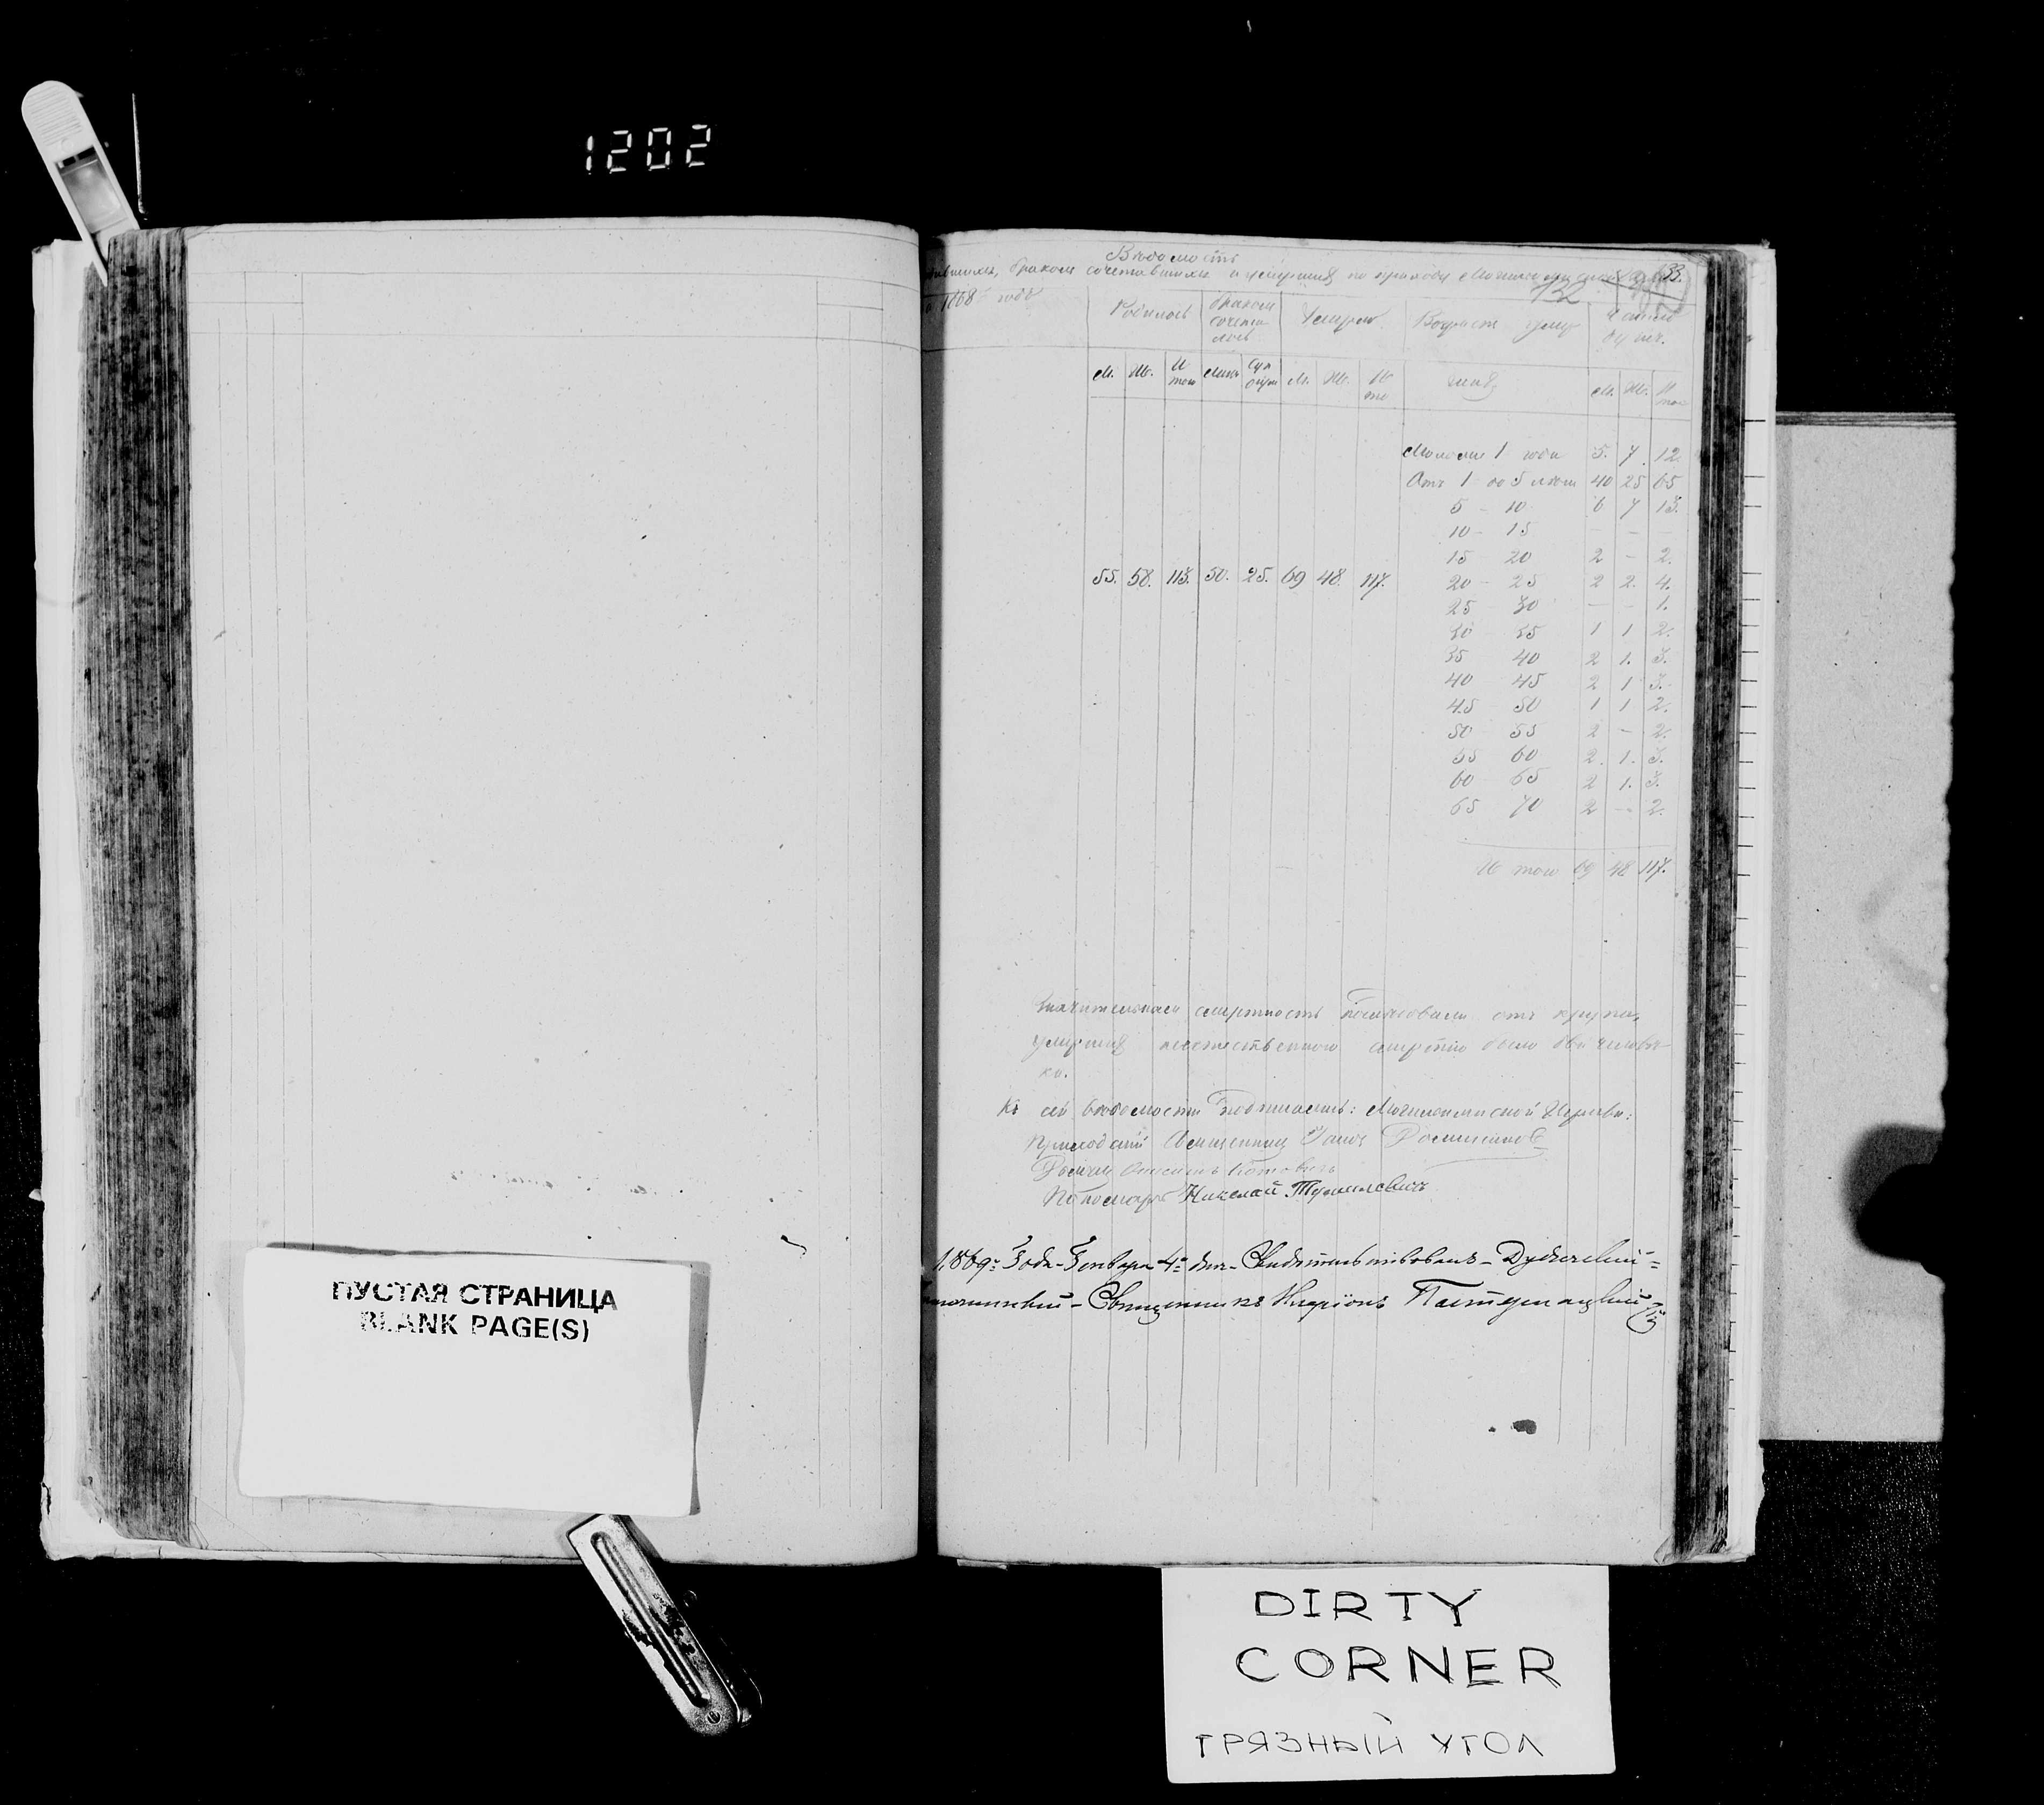 1202
Вѣдомость
бракомъ сочетавшихся и умершихъ по приходу
1868 года
132
133.
Родилось
бракомъ сочета лось
Умерло
Возрастъ умер
Число душъ.
М. Ж. И того
М. Ж. И то
шихъ
М. Ж. И того
Моложе 1 года 5. 7. 12.
Отъ 1 до 5 лѣтъ 40 25 65
5 - 10 6 7 13.
10 - 15 - - -
15 20 2 - 2.
55. 58. 113. 50. 25. 69 48. 117.
20 - 25 2 2. 4.
25 30 - - 1.
30 35 1 1 2.
35 40 2 1. 3.
40 45 2 1 3.
45 50 1 1 2.
50 55 2 - 2.
55 60 2. 1. 3.
60 65 2 1. 3.
65 70 2 - 2.
И того 69 48 117.
Значительная смертность послѣдовала отъ крупа,
умершихъ неестественною смертію было два человѣ-
ка.
Къ сей вѣдомости подписались: церкви:
Приходскій Священникъ
Пономарь Николай
1869 года Января 4 дня Свидѣтельствовалъ
Священникъ Иларіонъ
ПУСТАЯ СТРАНИЦА
BLANK PAGE(S)
DIRTY
CORNER
ГРЯЗНЫЙ УГОЛ